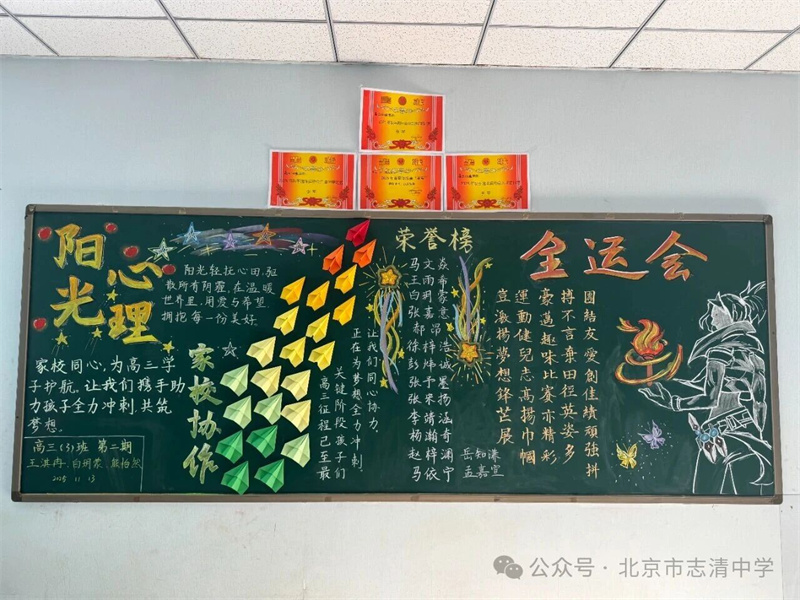 阳光
心理
阳光轻抚心田,驱
散所有阴霾,在温暖
世界里,用爱与希望
拥抱每一份美好.
家校同心,为高三学
子护航,让我们携手助
力孩子全力冲刺,共筑
梦想。
高三(3)班 第二期
王淇冉、白玥蒙、熊柏然
2025 11 13
家校协作
高三征程已至最
关键阶段孩子们
正在为梦想全力冲刺
让我们同心协力,
荣誉榜
马文焱
王雨希
白玥蒙
张嘉意
郝昂
徐梓浩
彭炜诚
张于墨
张来扬
李靖涵
杨瀚奇
赵梓澜
马依宁
岳知
孟嘉萱
全运会
團結友愛創佳績頑強拼
搏不言棄田徑英姿多
豪邁趣味比賽亦精彩
運動健兒志高揚巾幗
豈激揚夢想鋒芒展
公众号·北京市志清中学